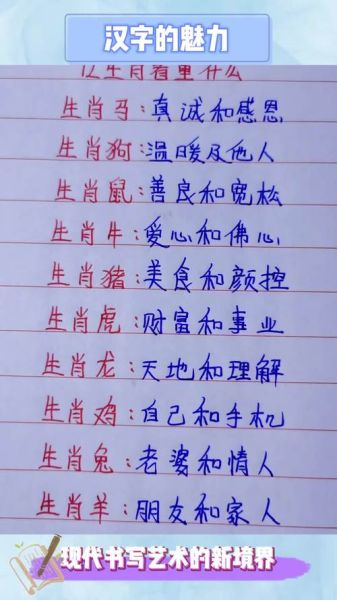 汉字的魅力
生肖看重什么
生肖马:真诚和感恩
生肖狗:温暖及他人
生肖鼠:善良和宽松
生肖牛:爱心和佛心
生肖猪:美食和颜控
生肖虎:财富和事业
生肖龙:天地和理解
生肖鸡:自己和手机
生肖兔:老婆和情人
生肖羊:朋友和家人
现代书写艺术的新境界